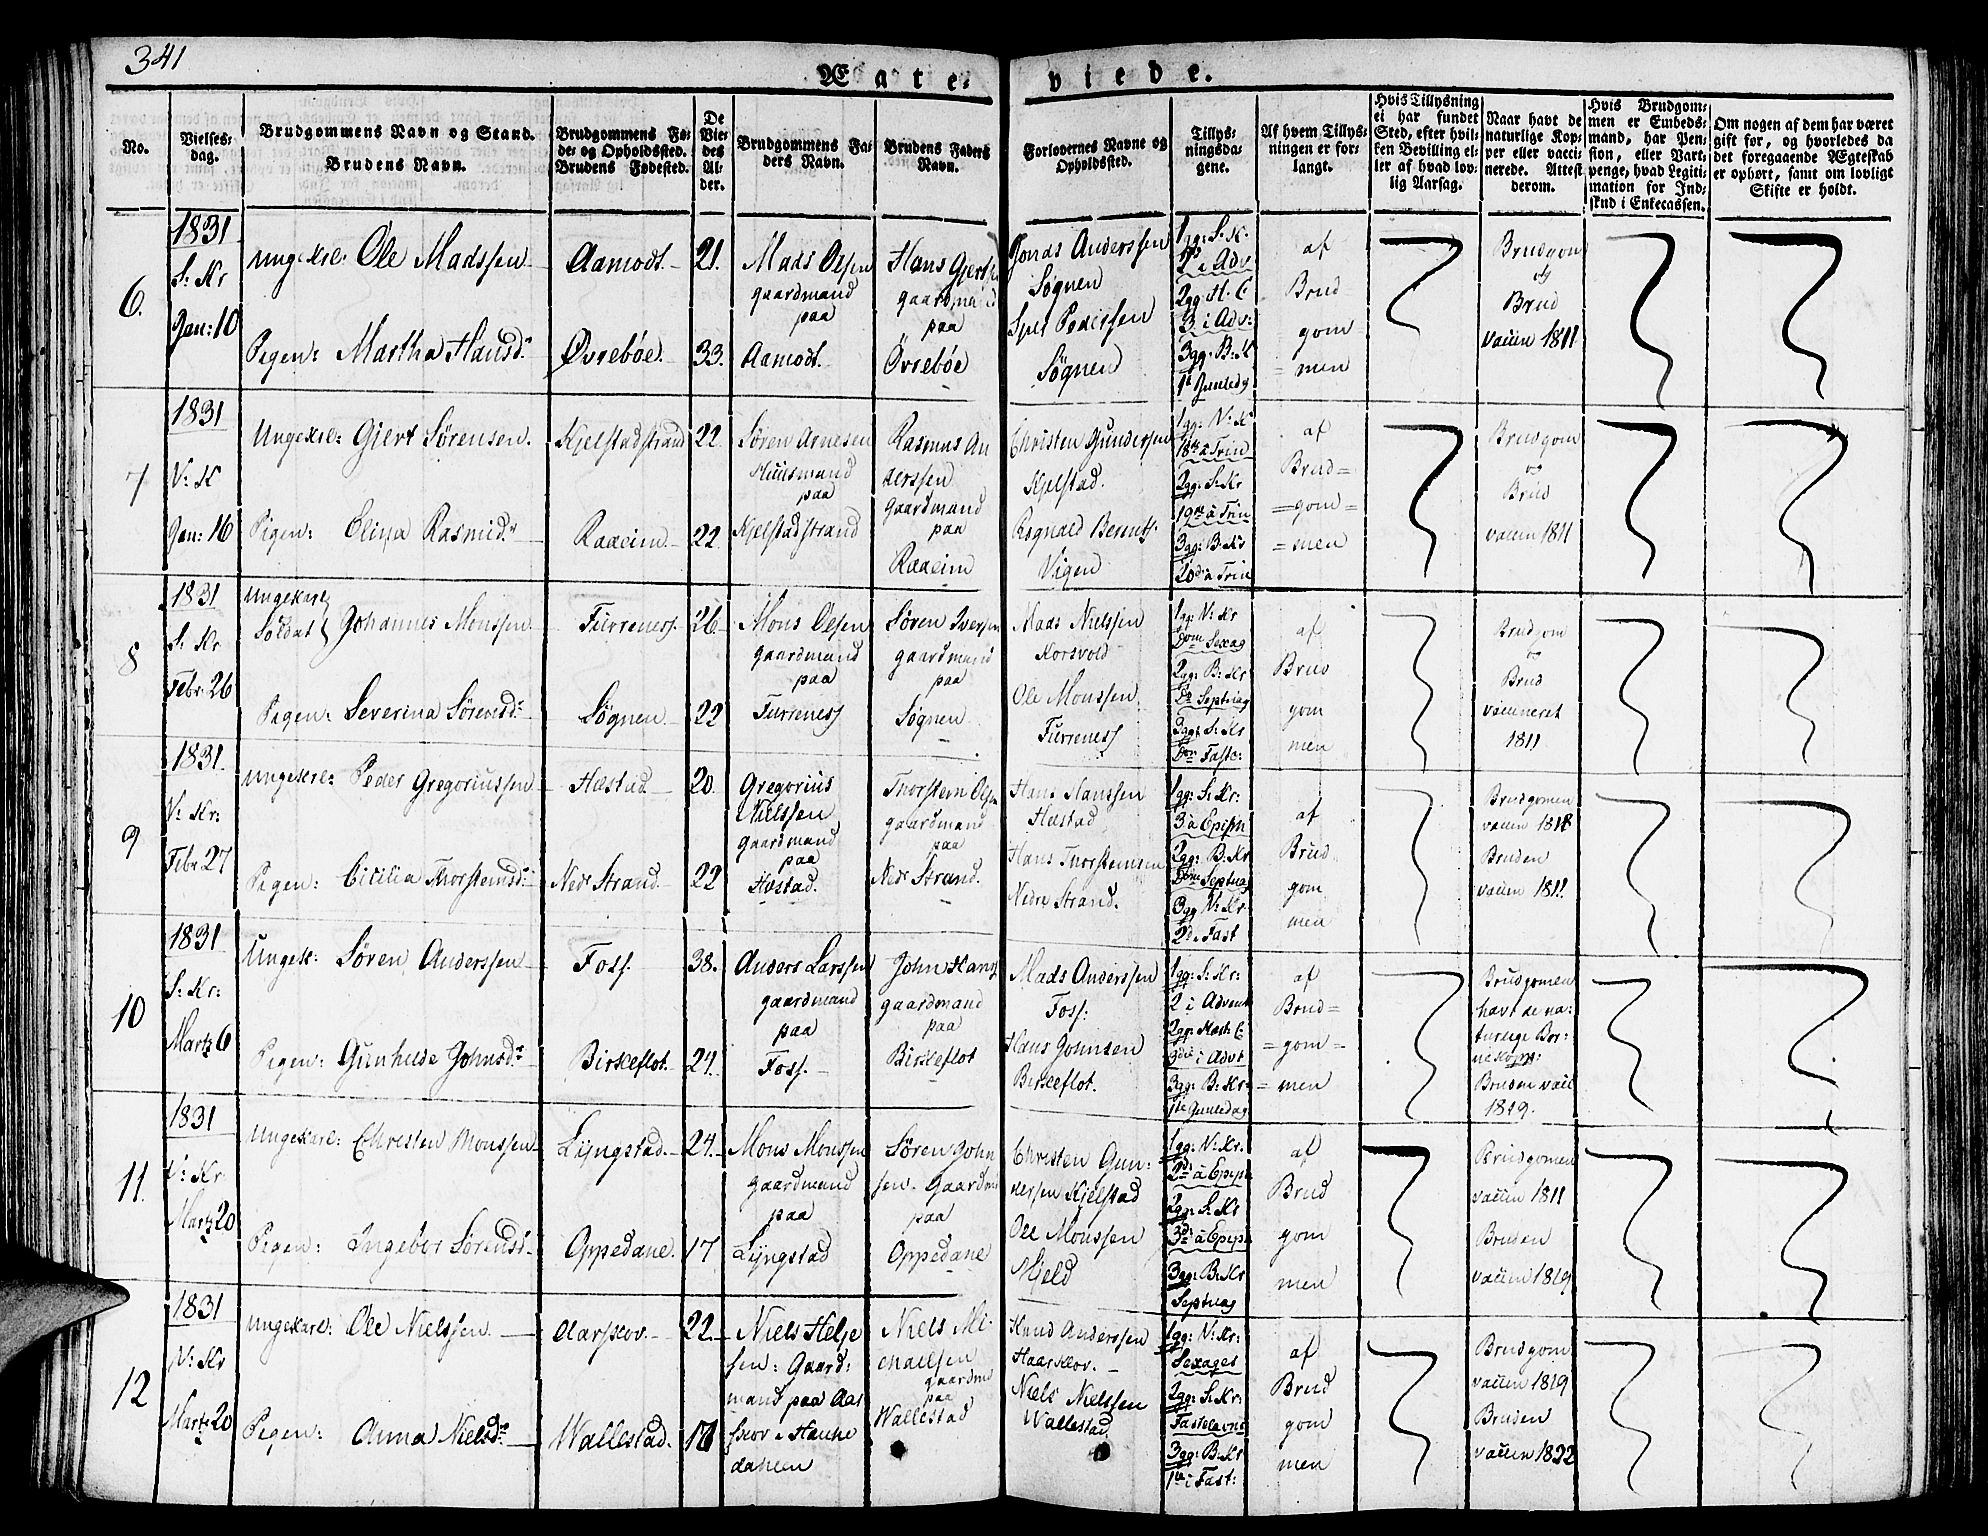 341
Ægte- viede.
No.
Vielses-
dag.
Brudgommens Navn og Stand.
Brudens Navn.
Brudgommens Fø-
de- og Opholdssted.
Brudens Fødested.
De
Vie-
des
Al-
der.
Brudgommens Fa-
ders Navn.
Brudens Faders
Navn.
Forlovernes Navne og
Opholdssted.
Tillys-
ningsda-
gene.
Af hvem Tillys-
ningen er for-
langt.
Hvis Tillysning
ei har fundet
Sted, efter hvil-
ken Bevilling el-
ler af hvad lov-
lig Aarsag.
Naar havt de
naturlige Kop-
per eller vacci-
nerede. Attest
derom.
Hvis Brudgom-
men er Embeds-
mand, har Pen-
sion, eller Vart-
penge, hvad Legiti-
mation for Ind-
skud i Enkecassen.
Om nogen af dem har været
gift før, og hvorledes da
det foregaaende Ægteskab
er ophørt, samt om lovligt
Skifte er holdt.
6.
1831
S: Kr
Jan: 10
Ungekrl: Ole Madssen
Pigen: Martha Hansd:
Aamodt.
Øvrebøe.
21.
33.
Mads Olsen
gaardmand
paa
Aamodt.
Hans Gjertsen
gaardmand
paa
Övrebøe
Jonas Anderssen
Søgnen
Pederssen
Søgnen
1gg: S: K:
2 i Adv
2gg H. C
3 i Adv:
3gg: B: K
1te Juuledg
af
Brud
gom
= men
Brudgom
og
Brud
vaccn 1811
7
1831
V: K
Jan: 16
Ungekrl: Gjert Sörensen.
Pigen: Elina Rasmidr
Kjelstadstrand
Raaeim
22
22
Sören Arnesen
Huusmand
paa
Kjelstadstrand
Rasmus An
derssen
gaardmand
paa
Raaeim
Christen Gunderssen
Kjelstad.
Rognald Berents:
Vigen
1gg: V: Kr
18de à Trin
2gg: S: Kr
19de à Trin
3gg: B: Kr
20de à Trin
af
Brud=
=gom=
=men
Brudgom
og
Brud
vaccn 1811
8
1831
S: Kr
Febr: 26
Ungekarl
Soldat
Johannes Monssen
Pigen: Severina Sörensd:
Furreness.
Søgnen
26
22
Mons Olsen
gaardmand
paa
Furreness
Sören Iversen
gaardmand
paa
Søgnen
Mads Nielssen
Korsvold
Ole Monssen
Furreness
1gg: V: Kr
Dom Sexag
2gg: B: Kr
Septuag
3gg: S: Kr
Dom Faste:
af
Brud
gom
men
Brudgom
og
Brud
vaccineret
1811
9
1831
V: Kr:
Febr 27
Ungekrl: Peder Gregoriussen
Pigen: Cicilia Thorsteinsd:
Hæstad
Nedr Strand
20.
22
Gregorius
Nielssen
gaardmand
paa
Hæstad.
Thorstein Olsen
gaardmand
paa
Nedr Strand.
Hans Hanssen
Hæstad
Hans Thorsteinsen
Nedre Strand.
1gg: S: Kr:
3 à Epiph
2gg: B: Kr
Dom Septuag
3gg V: Kr
2d i Fast
af
Brud
gom
men
Brudgomen
vaccn 1818
Bruden
vaccn 1811
10
1831
S: Kr:
Marts 6
Ungek: Søren Anderssen
Pigen: Gunhilde Johnsdr
Foss.
Birkeflot.
38.
24.
Anders Larssen
gaardmand
paa
Foss.
John Hans
gaardmand
paa
Birkeflot
Mads Anderssen
Foss:
Hans Johnsen
Birkeflot.
1gg: S: Kr:
2 i Advent
3die i Advt
3gg: B: Kr:
1te Juuledag
af
Brud=
=gom=
= men
Brudgomen
havt de na:
turlige Bör:
nekop:
Bruden vacc
1819.
11.
1831
V: Kr
Marts 20
Ungekarl: Christen Monssen
Pigen: Ingebor Sörensd
Lyngstad.
Oppedane.
24.
17
Mons Monssen
gaardmand
paa
Lyngstad
Sören John
sen. Gaardm
paa
Oppedane
Christen Gun:
derssen Kjelstad
Ole Monssen
Mjeld
1gg: V: Kr.
2d à Epiph
2gg: S: Kr
3d à Epiph
3gg: B: Kr
Septuag
af
Brud
gom
men
Brudgomen
vaccn 1811
Bruden
vaccn 1819
12
1831
V: Kr
Marts 20
Ungekarl: Ole Nielssen.
Pigen: Anna Nielsdr
Aarskov.
Wallestad.
22.
Niels Helje
sen: Gaard:
mand paa Aar
skov i Hauke
dahlen
Niels Mi-
chaelsen
gaardmd
paa
Wallestad
Knud Anderssen
Haarskov.
Niels Nielssen
Wallestad.
1gg: V: Kr:
Sexages
2gg: S: Kr:
Fastelavns
3gg: B: Kr
1te i Fast:
af
Brud
gom
men
Brudgom
vaccn 1819
Bruden
vaccn 1822